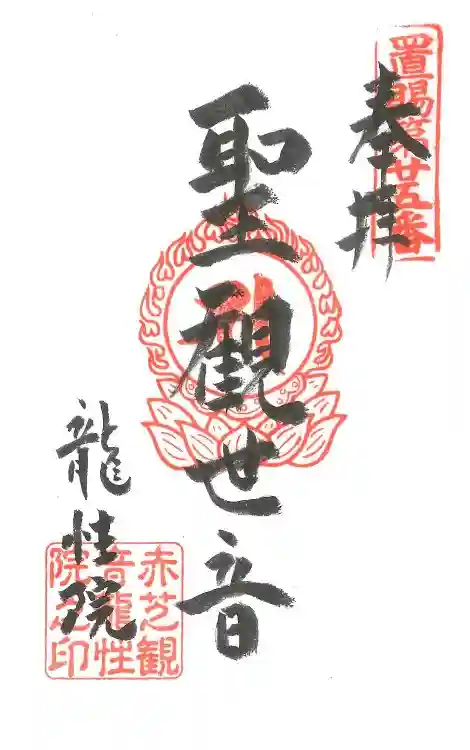 置賜第廿五番
奉拝
聖觀世音
龍性院
赤芝観
音龍性
院之印